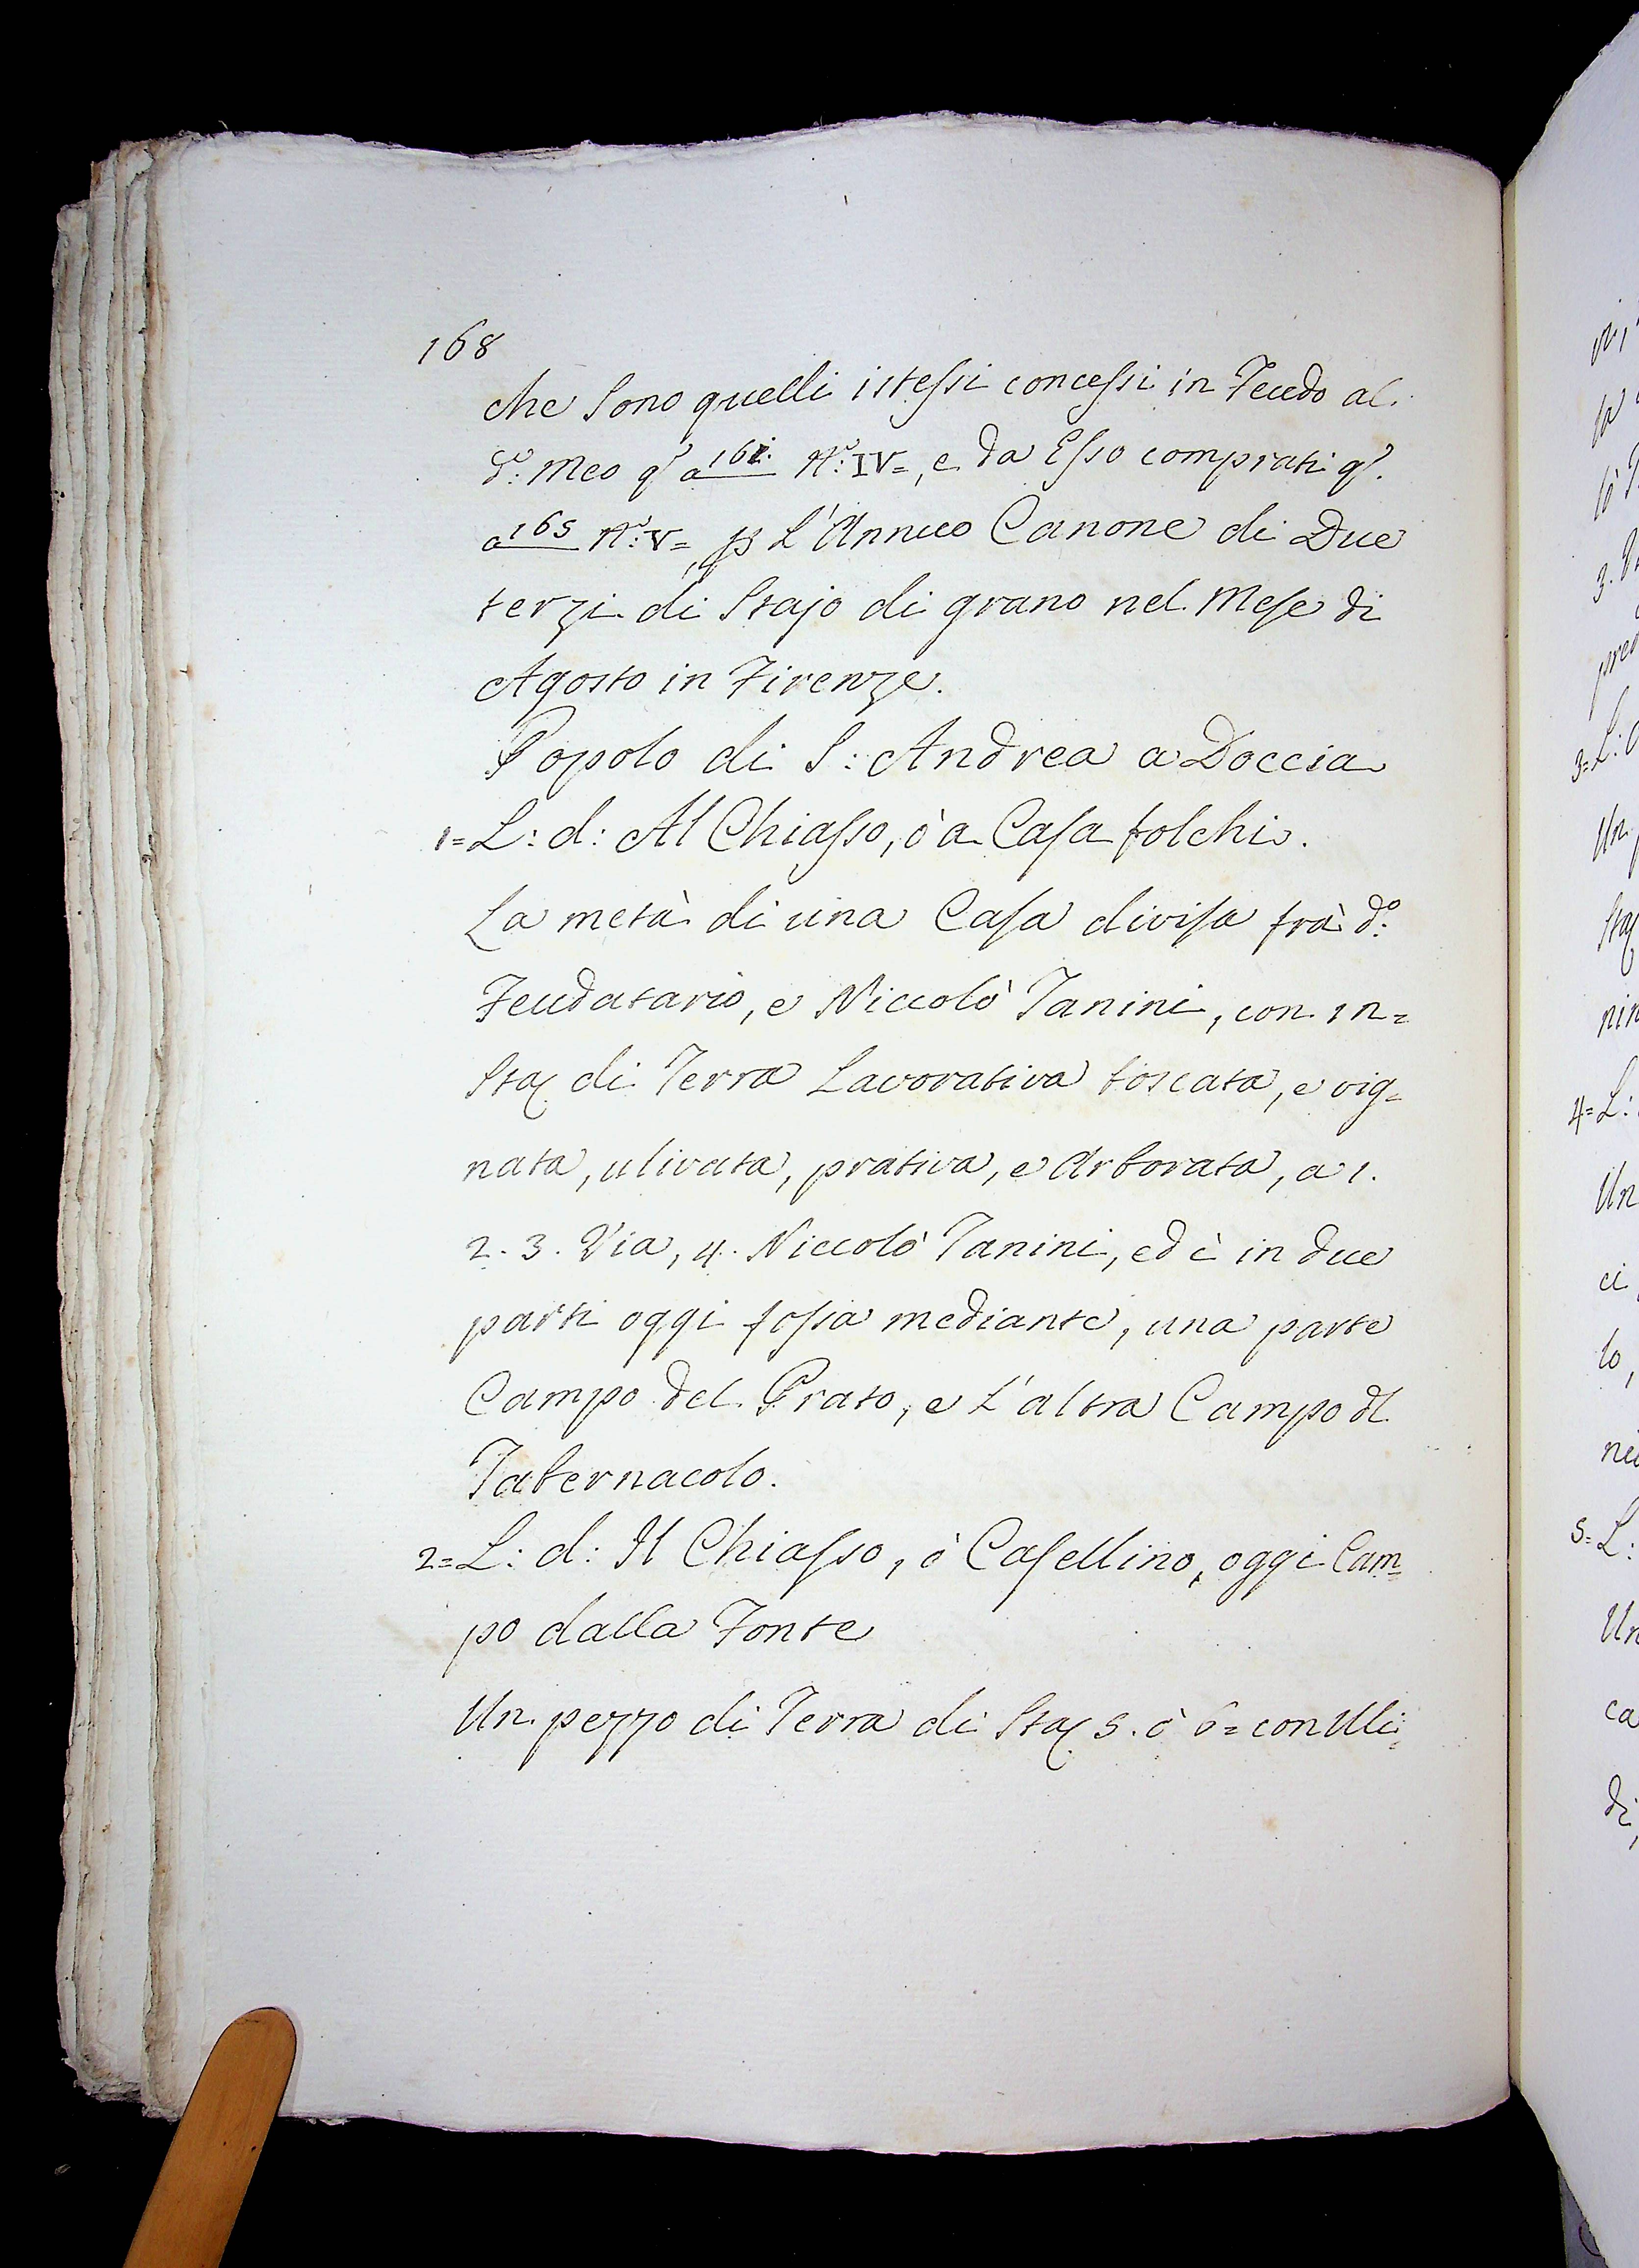 168
che sono quelli istessi concessi in Feudo al
d.º Meo q.º a 161. N.º: IV=, e da Esso comprati q.º
a 165 N.º: V=, p L'Annuo Canone di Due
terzi di Stajo di grano nel Mese di
Agosto in Firenze.
Popolo di S: Andrea a Doccia
1= L: d: Al Chiasso, ò a Casa folchi.
La metà di una Casa divisa frà d.º:
Feudatario, e Niccolò Tanini, con 12=
Sta di Terra Lavorativa boscata, e vig=
nata, ulivata, prativa, e Arborata, a 1.
2. 3. Via, 4. Niccolò Tanini, ed è in due
parti oggi fossa mediante, una parte
Campo del Prato, e L'altra Campo dl
Tabernacolo.
2= L: d: Il Chiasso, ò Casellino, oggi Cam=
po dalla Fonte
Un pezzo di Terra di Sta 5. ò 6= con Uli=
3= L:
Un
4= L:
Un
ci
lo,
5= L:
Un
ca
di,